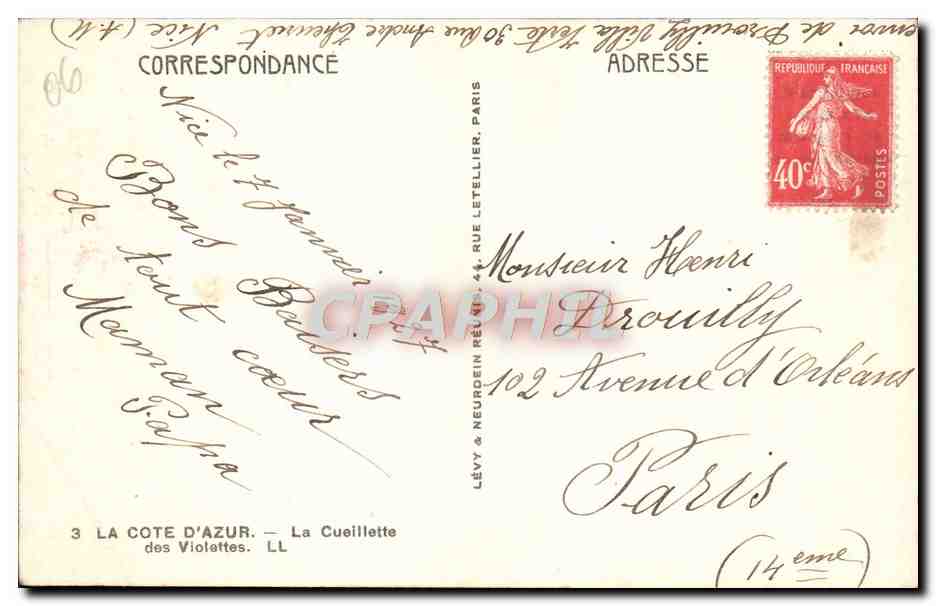 envoi de Drouilly Villa Verte 30 Rue André Theuriet Nice (A-M)
CORRESPONDANCE
ADRESSE
Nice le 7 Janvier
Bons Baisers
de tout cœur
Maman
Papa
LÉVY & NEURDEIN RÉUNIS, 44, RUE LETELLIER, PARIS
RÉPUBLIQUE FRANÇAISE
40c
POSTES
Monsieur Henri
Drouilly
102 Avenue d'Orléans
Paris
(14eme)
CPAPHIL
3 LA COTE D'AZUR. — La Cueillette
des Violettes. LL
06